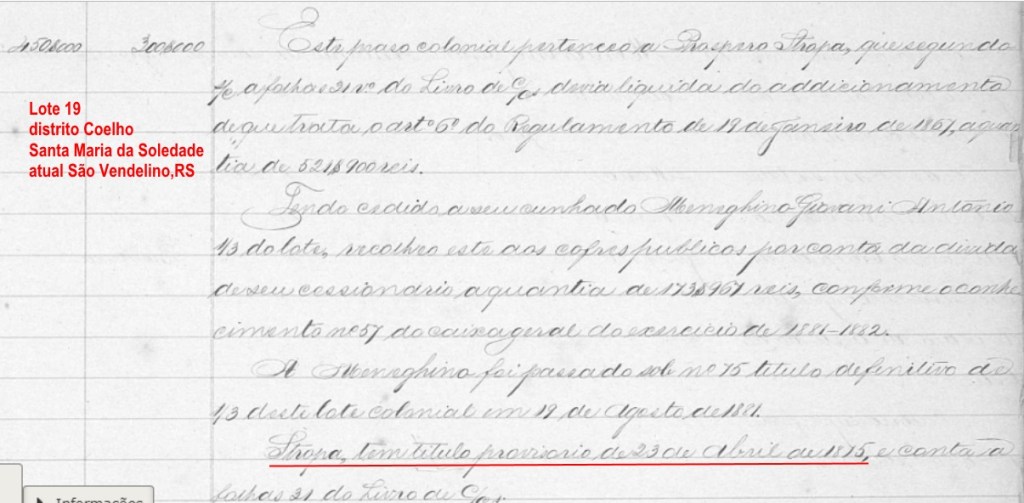 450$000 300$000 Este praso colonial pertenceo a Prospero Stropa, que segundo
c/c a folhas 21 vº do Livro de C/Ces devia liquida do addicionamento
de que trata o artº 6º do Regulamento de 19 de Janeiro de 1867, a quan
tia de 521$900 reis.
Lote 19
distrito Coelho
Santa Maria da Soledade
atual São Vendelino,RS
Tendo cedido a seu cunhado Meneghino Giovani Antonio
1/3 do lote, recolheo este aos cofres publicos por conta da divida
de seu cessionario a quantia de 173$967 reis, conforme o conhe
cimento nº 57 do caixa geral do exercicio de 1881-1882.
A Meneghino foi passado sob nº 75 titulo definitivo de
1/3 deste lote colonial em 19 de Agosto de 1881.
Stropa, tem titulo provisorio de 23 de Abril de 1875, e conta a
folhas 21 do Livro de C/Ces.
Informações